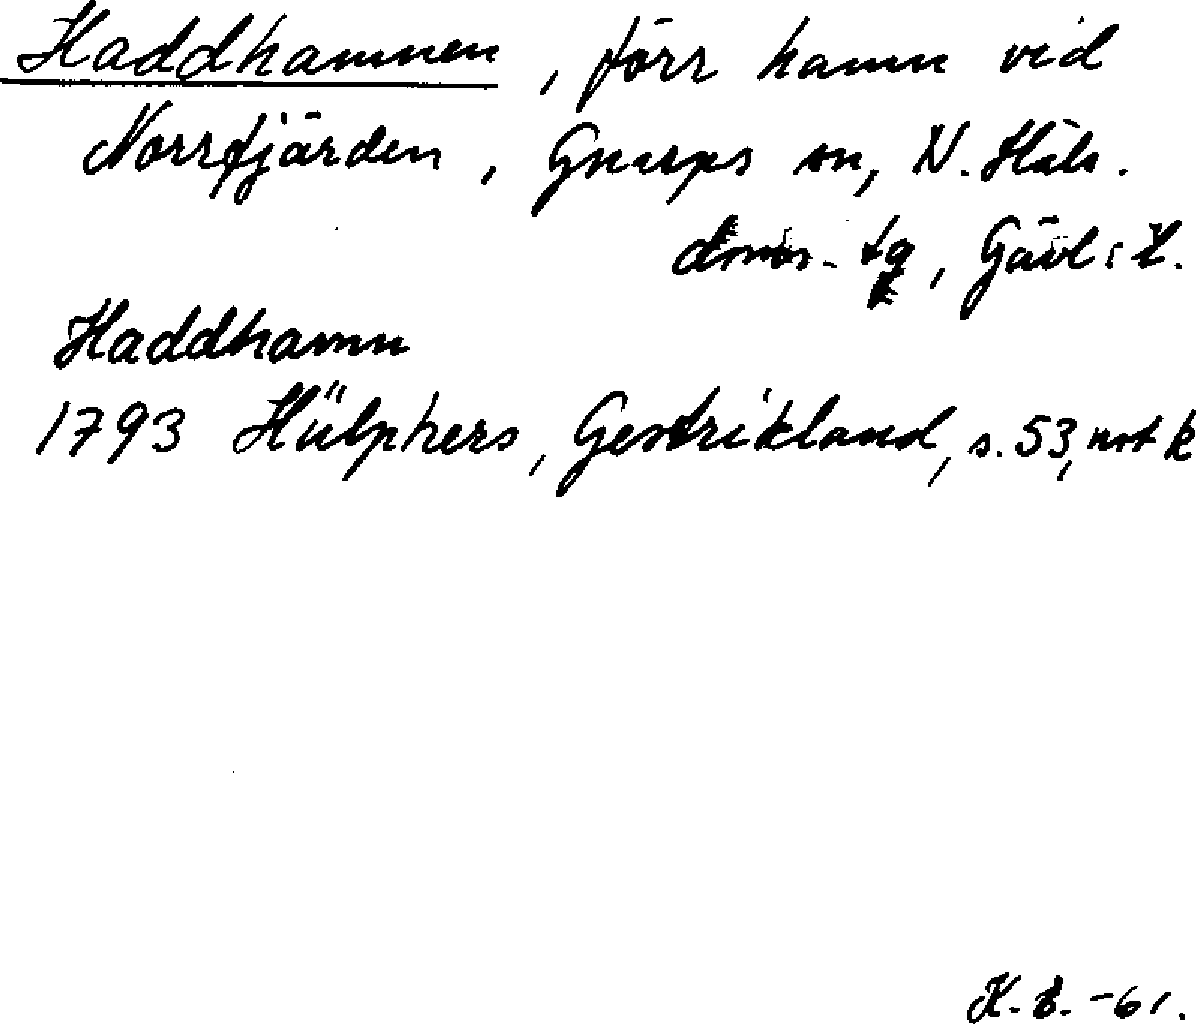 Haddhamnen, förr hamn vid
Norrfjärden, Gnarps sn, N. Häls.
doms. tg, Gävl:s l.
Haddhamn
1793 Hülphers, Gestrikland, s. 53, not k
K. -61.